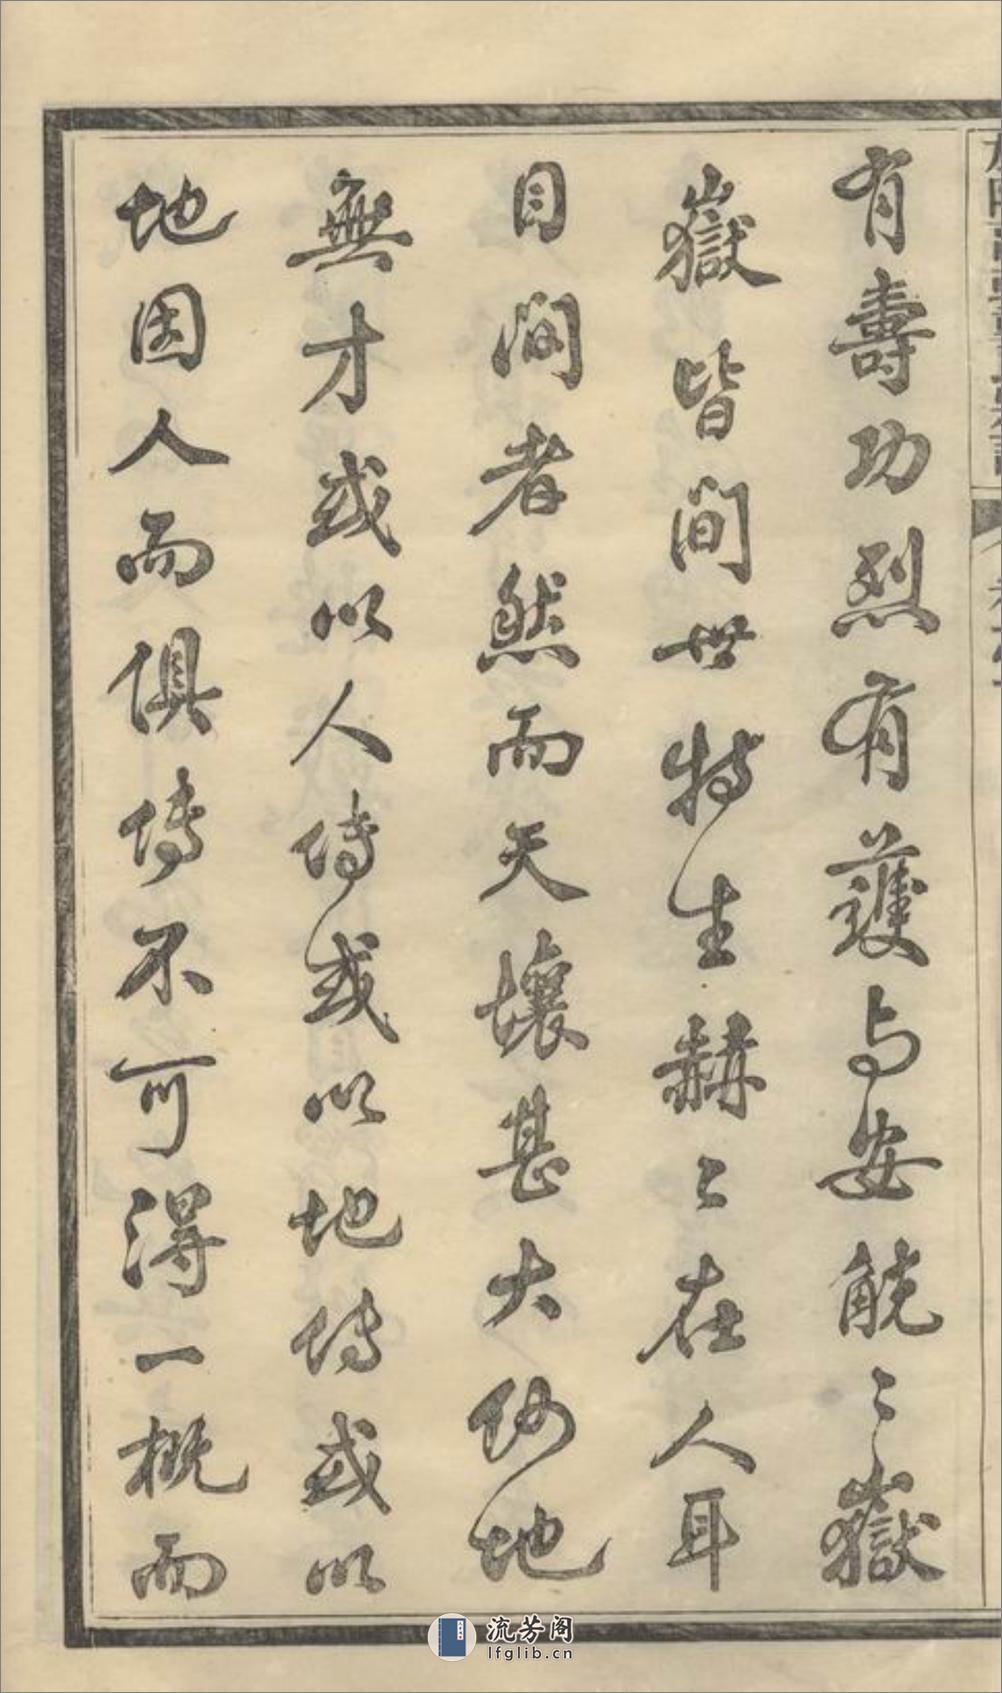 有壽功烈有護与安觥〻嶽
嶽皆間世特生赫〻在人耳
目間者然而天壤甚大何地
無才或以人傳或以地傳或以
地因人而俱傳不可得一概而
流芳阁
lfglib.cn